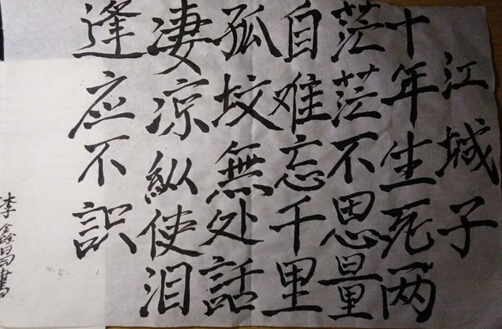 江城子
十年生死两
茫茫不思量
自难忘千里
孤坟無处話
凄凉纵使泪
逢应不识
李鑫昌書